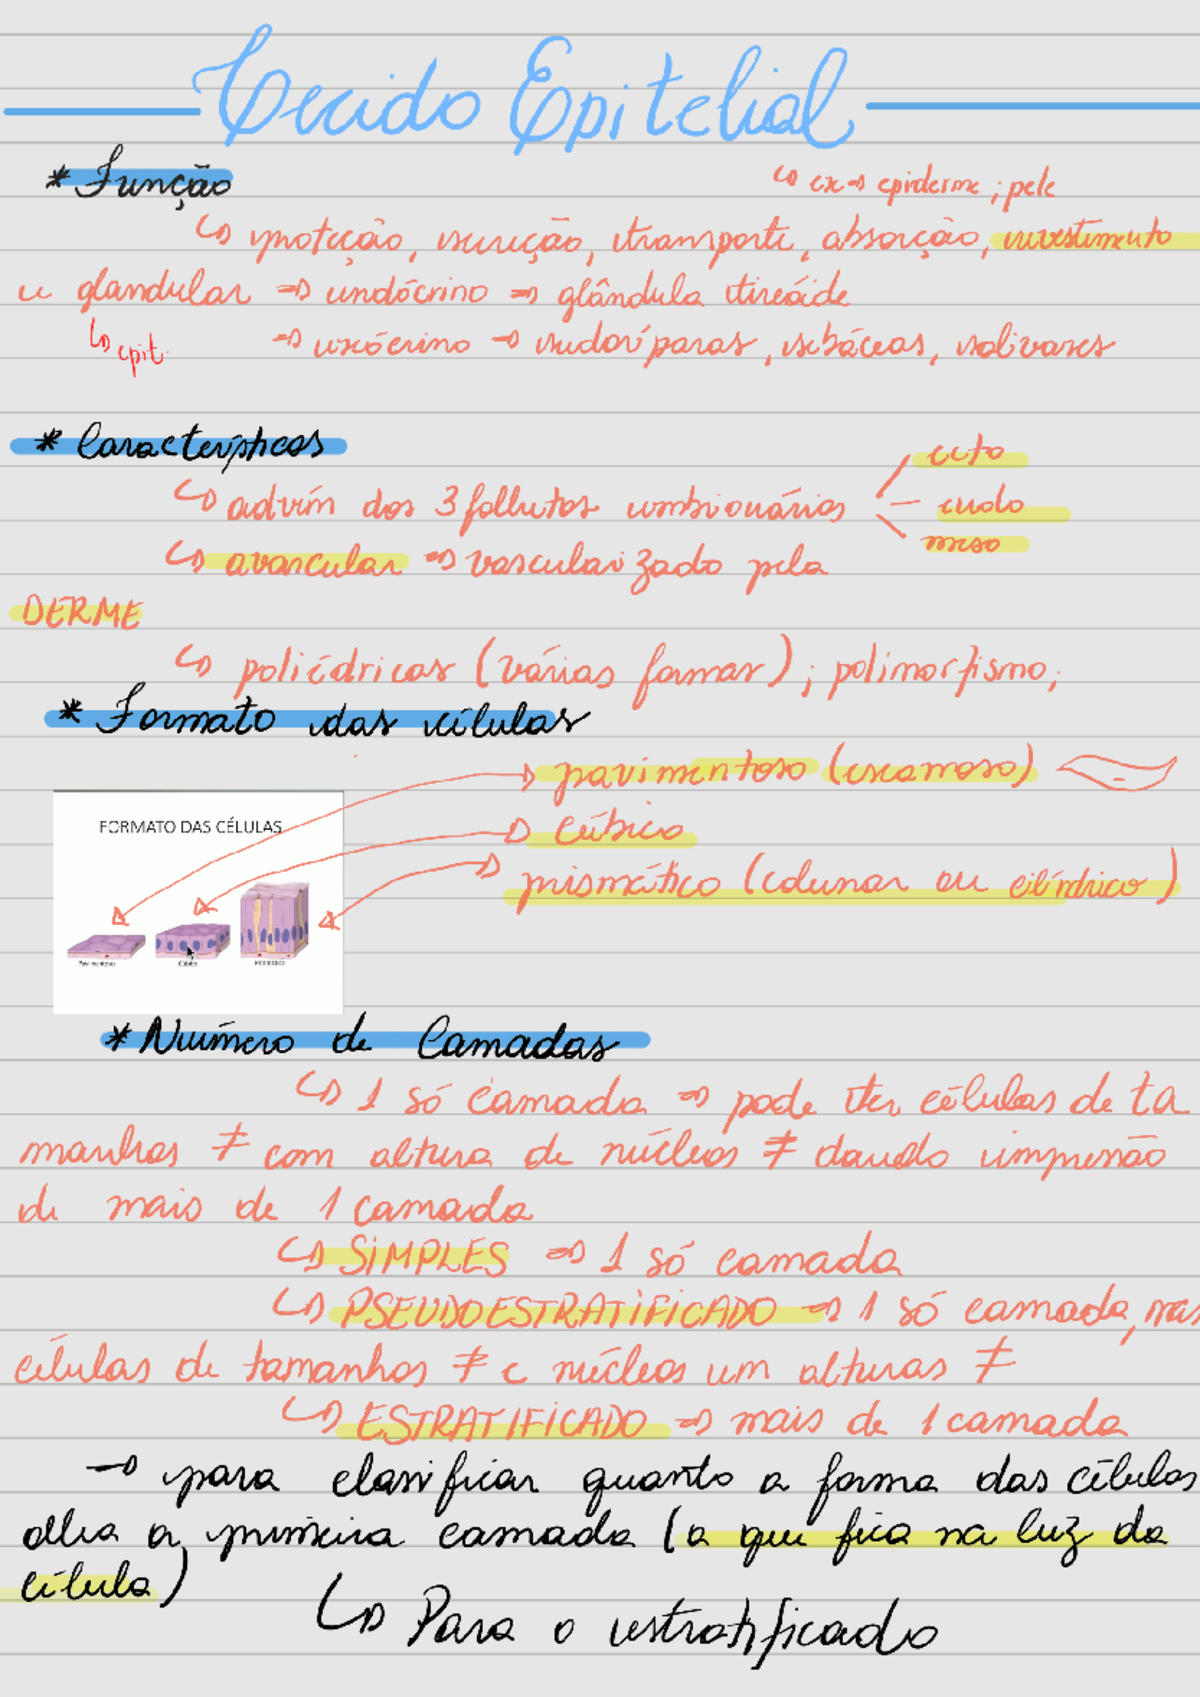 Tecido Epitelial
* Função
↳ ex → epiderme ; pele
↳ proteção, secreção, transporte, absorção, revestimento
e glandular ⇒ endócrino ⇒ glândula tireóide
↳ epit.
⇒ exócrino → sudoríparas, sebáceas, salivares
* Características
↳ advém dos 3 folhetos embrionários
ecto
endo
meso
↳ avascular ⇒ vascularizado pela
DERME
↳ poliédricas (várias formas) ; polimorfismo;
* Formato das células
→ pavimentoso (escamoso)
FORMATO DAS CÉLULAS
→ cúbico
→ prismático (colunar ou cilíndrico)
Pavimentoso Cúbico Prismático
* Número de Camadas
↳ 1 só camada ⇒ pode ter células de ta
manhos ≠ com altura de núcleos ≠ dando impressão
de mais de 1 camada
↳ SIMPLES ⇒ 1 só camada
↳ PSEUDOESTRATIFICADO ⇒ 1 só camada, mas
células de tamanhos ≠ e núcleos em alturas ≠
↳ ESTRATIFICADO ⇒ mais de 1 camada
→ para classificar quanto a forma das células
olha a primeira camada (a que fica na luz da
célula)
↳ Para o estratificado